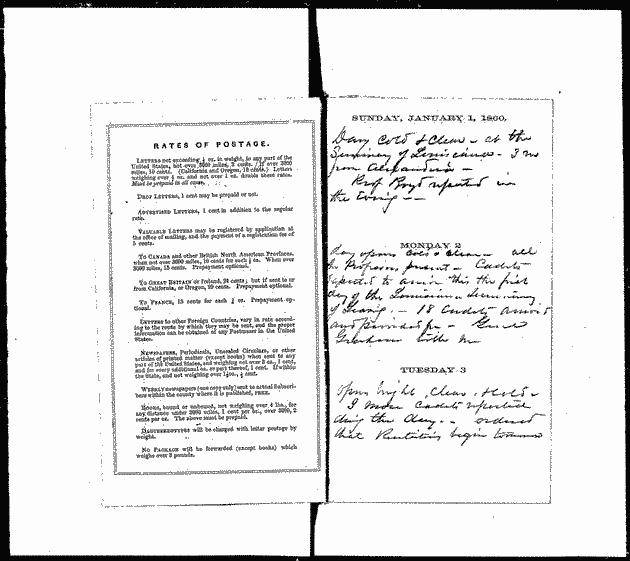 RATES OF POSTAGE.
LETTERS not exceeding ½ oz. in weight, to any part of the
United States, not over 3000 miles, 3 cents. If over 3000
miles, 10 cents. (California and Oregon, 10 cents.) Letters
weighing over ½ oz. and not over 1 oz. double these rates.
Must be prepaid in all cases.
DROP LETTERS, 1 cent may be prepaid or not.
ADVERTISED LETTERS, 1 cent in addition to the regular
rate.
VALUABLE LETTERS may be registered by application at
the office of mailing, and the payment of a registration fee of
5 cents.
TO CANADA and other British North American Provinces,
when not over 3000 miles, 10 cents for each ½ oz. When over
3000 miles, 15 cents. Prepayment optional.
TO GREAT BRITAIN or Ireland, 24 cents; but if sent to or
from California, or Oregon, 29 cents. Prepayment optional.
TO FRANCE, 15 cents for each ¼ oz. Prepayment op-
tional.
LETTERS to other Foreign Countries, vary in rate accord-
ing to the route by which they may be sent, and the proper
information can be obtained of any Postmaster in the United
States.
NEWSPAPERS, Periodicals, Unsealed Circulars, or other
articles of printed matter (except books) when sent to any
part of the United States, and weighing not over 3 oz., 1 cent,
and for every additional oz. or part thereof, 1 cent. If within
the State, and not weighing over 1½ oz., ½ cent.
WEEKLY newspapers (one copy only) sent to actual Subscri-
bers within the county where it is published, FREE.
BOOKS, bound or unbound, not weighing over 4 lbs., for
any distance under 3000 miles, 1 cent per oz., over 3000, 2
cents per oz. The above must be prepaid.
DAGUERREOTYPES will be charged with letter postage by
weight.
NO PACKAGE will be forwarded (except books) which
weighs over 3 pounds.
SUNDAY, JANUARY 1, 1860.
Day Cold & Clear - at the
Seminary of Louisiana -
from Alexandria -
Prof Boyd reported in
the evening -
MONDAY 2
day opens cold & clear - all
the Professors present - Cadets
expected to arrive this the first
day of the Louisiana Seminary
of Learng. - 18 Cadets arrived
and provided for - Genl
Graham with me
TUESDAY 3
Opens bright, Clear, & Cold -
more Cadets reported
during the day - ordered
that Recitations begin tomorrow